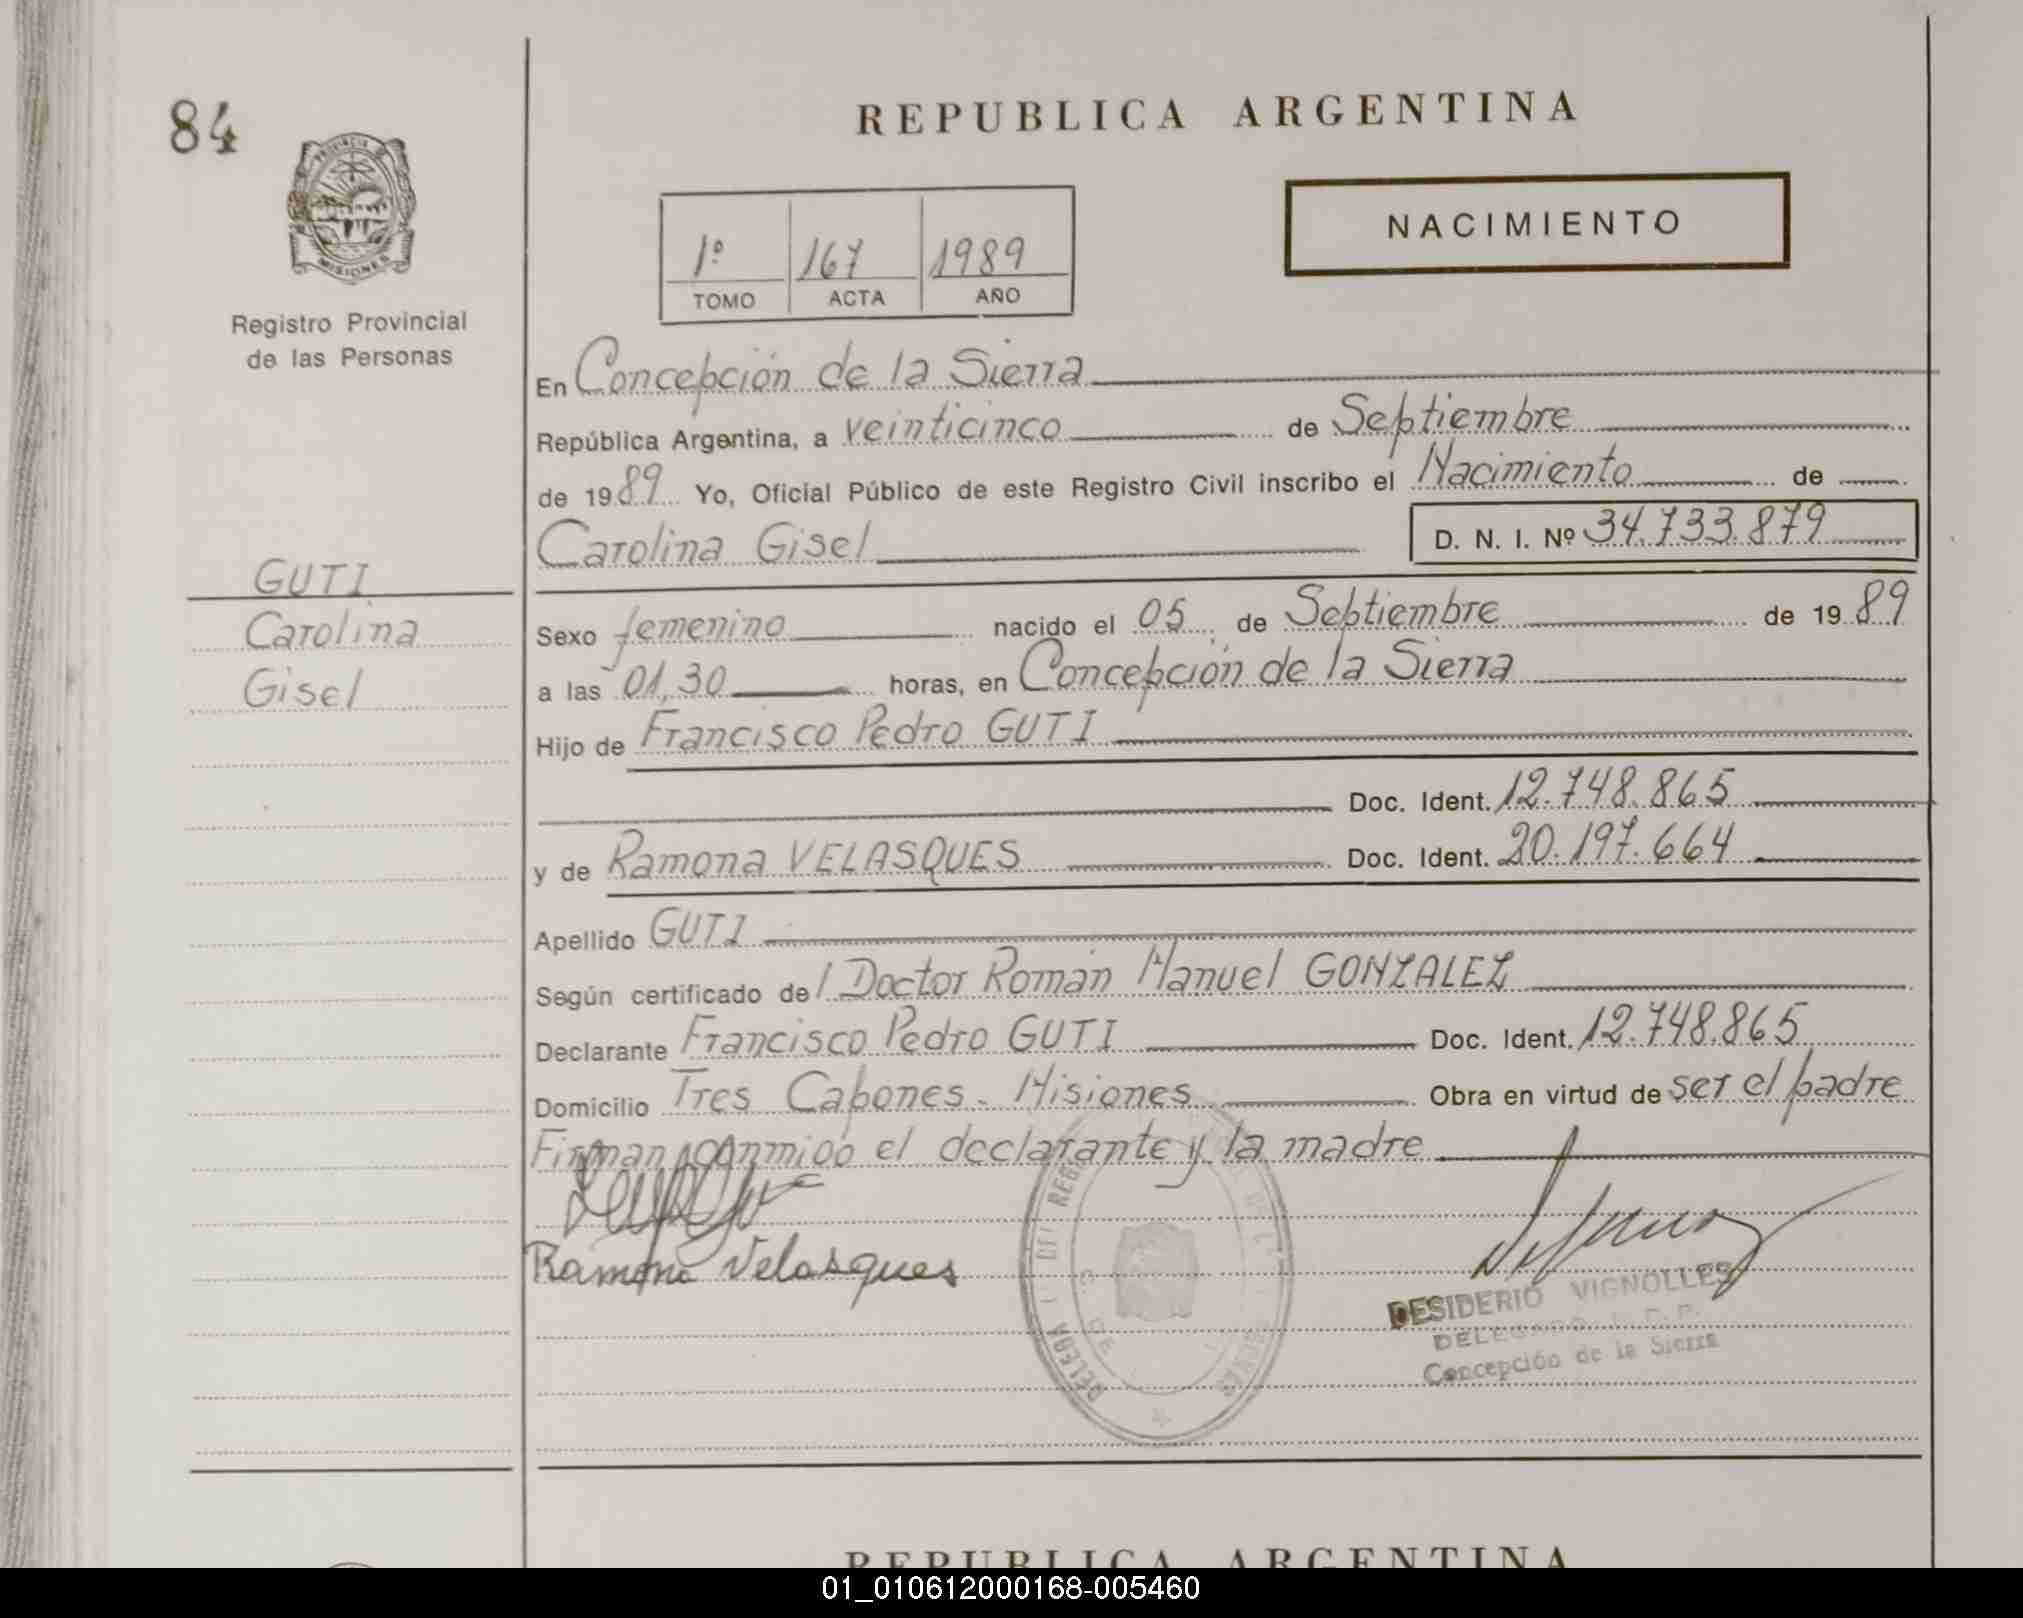 84
PROVINCIA DE
MISIONES
Registro Provincial
de las Personas
REPUBLICA ARGENTINA
NACIMIENTO
1º 167 1989
TOMO ACTA AÑO
En Concepción de la Sierra
República Argentina, a veinticinco de Septiembre
de 1989 Yo, Oficial Público de este Registro Civil inscribo el Nacimiento de
Carolina Gisel D. N. I. Nº 34.733.879
GUTI
Carolina
Gisel
Sexo femenino nacido el 05 de Septiembre de 1989
a las 01,30 horas, en Concepción de la Sierra
Hijo de Francisco Pedro GUTI
Doc. Ident. 12.748.865
y de Ramona VELASQUES Doc. Ident. 20.197.664
Apellido GUTI
Según certificado del Doctor Román Manuel GONZALEZ
Declarante Francisco Pedro GUTI Doc. Ident. 12.748.865
Domicilio Tres Capones - Misiones Obra en virtud de ser el padre
Firman conmigo el declarante y la madre
Ramona Velasques
DESIDERIO VIGNOLLES
DELEGADO
Concepción de la Sierra
REPUBLICA ARGENTINA
01_010612000168-005460